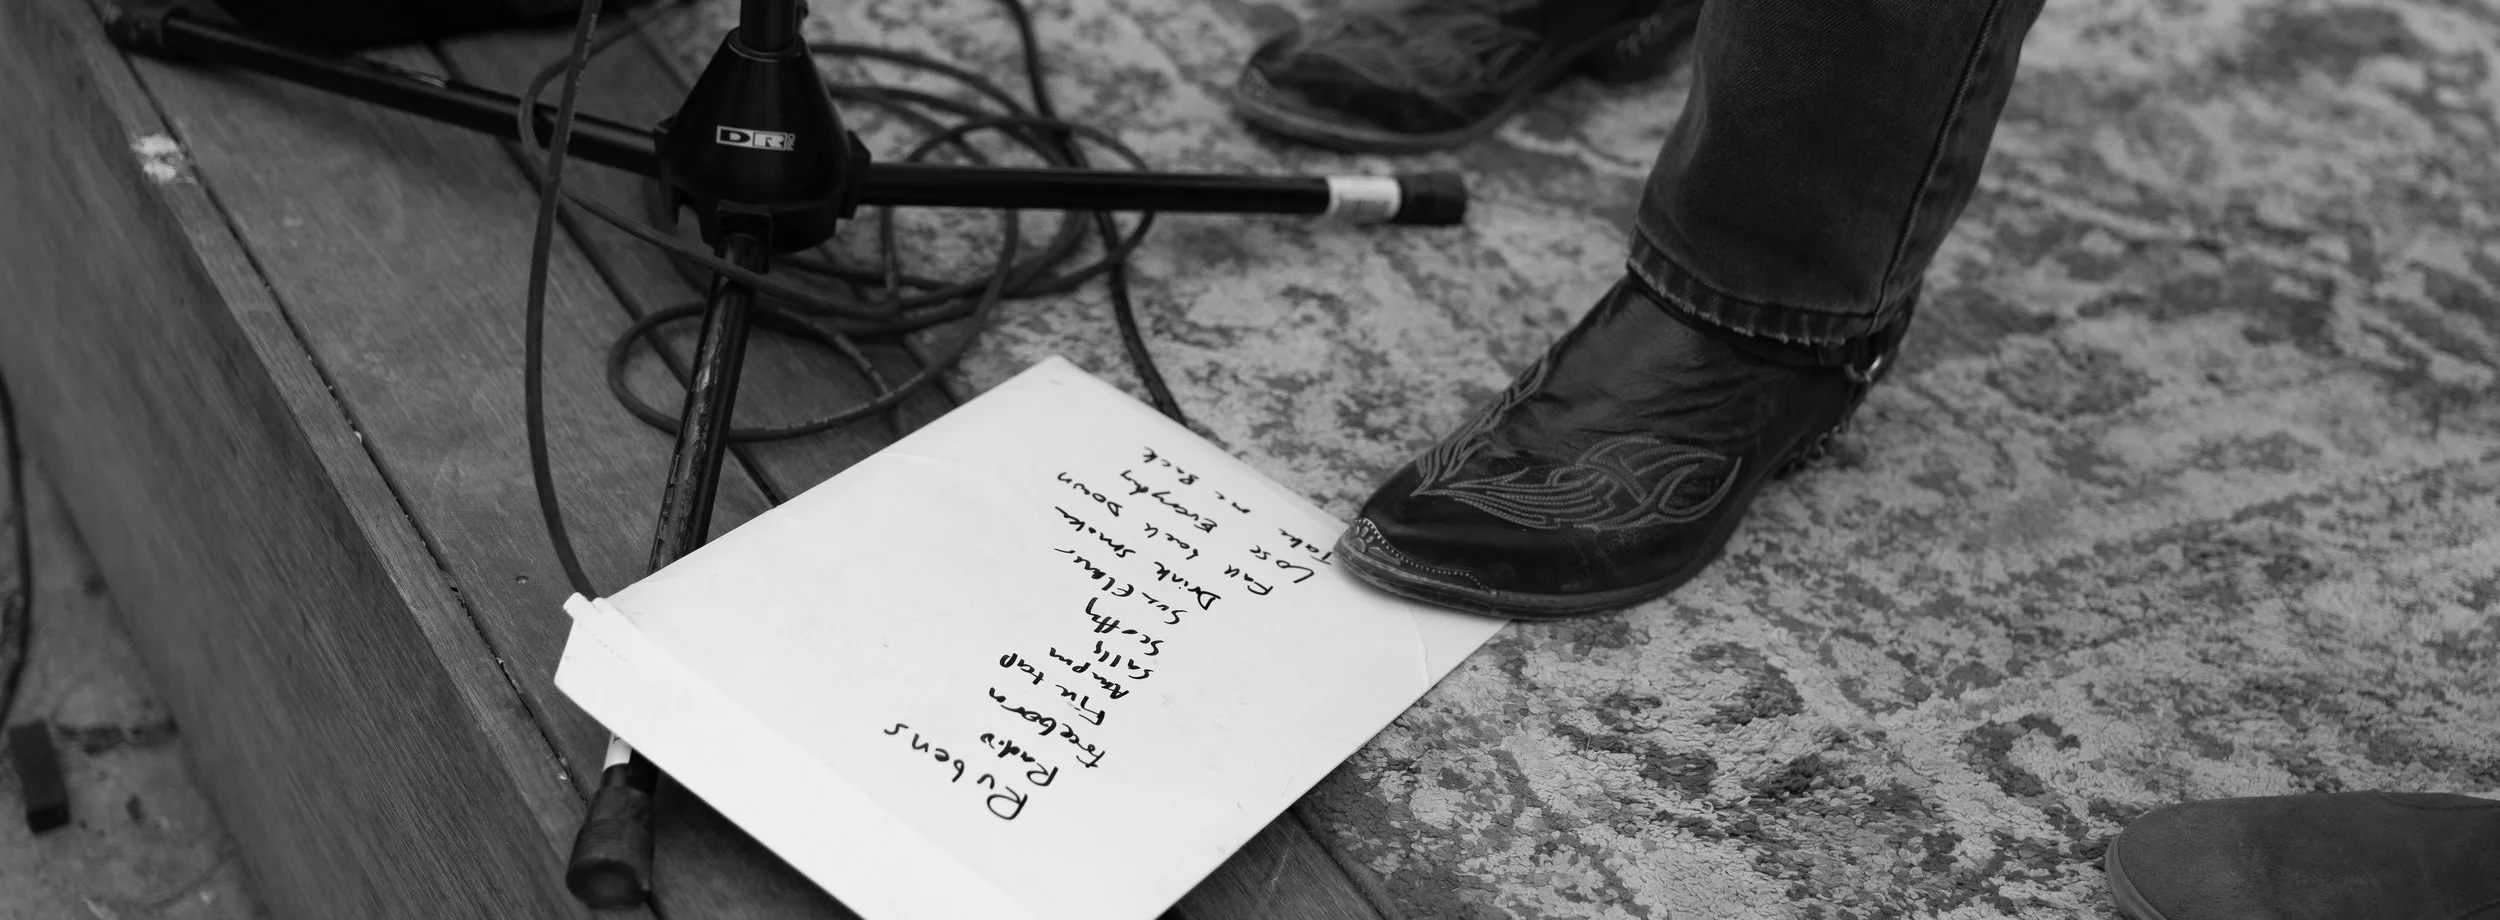 DR PRO
Rubens
Radio
Freeborn
Five top
Ampm
Sally
Scotty
Sue Ellans
Drink Smoke
Fall Down
Lose Everyday
Take me Back